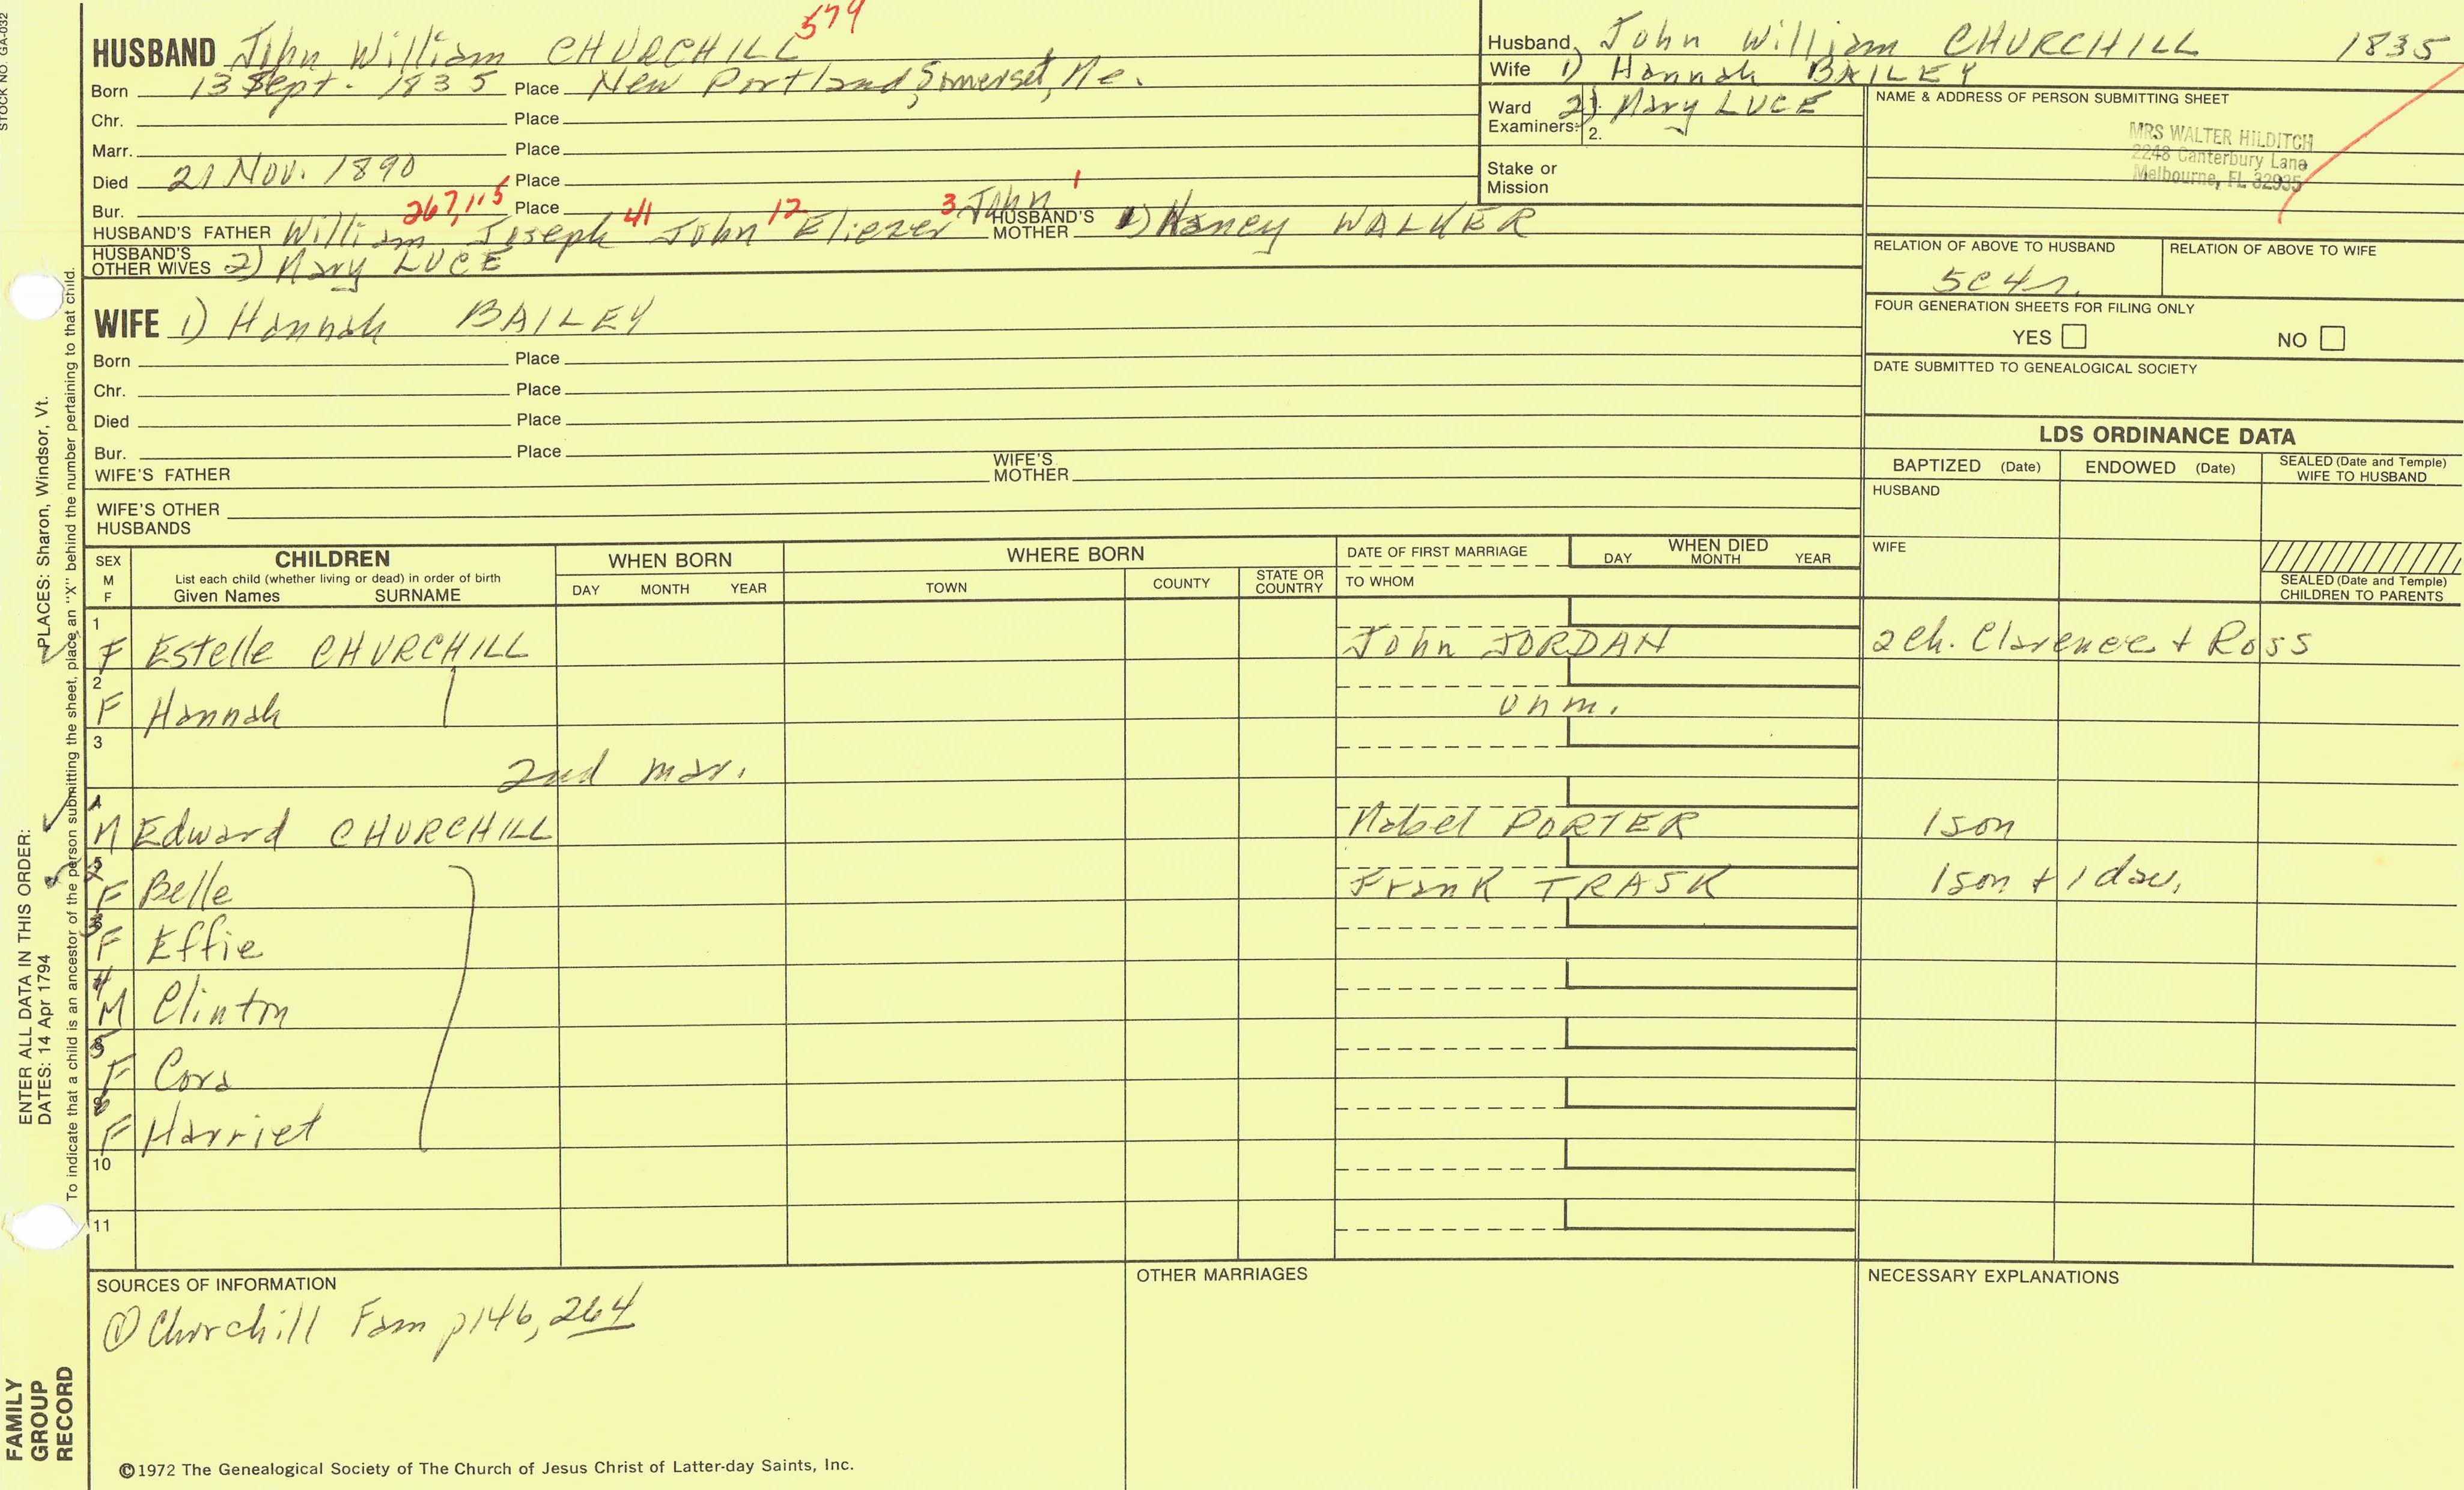 STOCK NO. GA-032
579
HUSBAND John William CHURCHILL
Born 13 Sept. 1835 Place New Portland, Somerset, Me.
Chr. Place
Marr. Place
Died 21 Nov. 1890 Place
Bur. Place
267, 115 41 12 3 John 1
HUSBAND'S FATHER William, Joseph John Eliezer HUSBAND'S MOTHER 1) Nancy WALKER
HUSBAND'S OTHER WIVES 2) Mary LUCE
WIFE 1) Hannah BAILEY
Born Place
Chr. Place
Died Place
Bur. Place
WIFE'S FATHER WIFE'S MOTHER
WIFE'S OTHER HUSBANDS
Husband John William CHURCHILL 1835
Wife 1) Hannah BAILEY
Ward Examiners: 1. 2) Mary LUCE
2.
Stake or Mission
NAME & ADDRESS OF PERSON SUBMITTING SHEET
MRS WALTER HILDITCH
2248 Canterbury Lane
Melbourne, FL 32935
RELATION OF ABOVE TO HUSBAND RELATION OF ABOVE TO WIFE
5C4r.
FOUR GENERATION SHEETS FOR FILING ONLY
YES NO
DATE SUBMITTED TO GENEALOGICAL SOCIETY
LDS ORDINANCE DATA
BAPTIZED (Date) ENDOWED (Date) SEALED (Date and Temple) WIFE TO HUSBAND
HUSBAND
WIFE
SEALED (Date and Temple) CHILDREN TO PARENTS
SEX M F CHILDREN WHEN BORN WHERE BORN DATE OF FIRST MARRIAGE WHEN DIED
List each child (whether living or dead) in order of birth
Given Names SURNAME DAY MONTH YEAR TOWN COUNTY STATE OR COUNTRY TO WHOM DAY MONTH YEAR
1 F Estelle CHURCHILL John JORDAN 2 ch. Clarence + Ross
2 F Hannah unm.
3 2nd mar.
1 M Edward CHURCHILL Mabel PORTER 1 son
2 F Belle Frank TRASK 1 son + 1 dau.
3 F Effie
4 M Clinton
5 F Cora
6 F Harriet
10
11
SOURCES OF INFORMATION
① Churchill Fam p146, 264
OTHER MARRIAGES
NECESSARY EXPLANATIONS
©1972 The Genealogical Society of The Church of Jesus Christ of Latter-day Saints, Inc.
ENTER ALL DATA IN THIS ORDER:
DATES: 14 Apr 1794 PLACES: Sharon, Windsor, Vt.
To indicate that a child is an ancestor of the person submitting the sheet, place an "X" behind the number pertaining to that child.
FAMILY
GROUP
RECORD